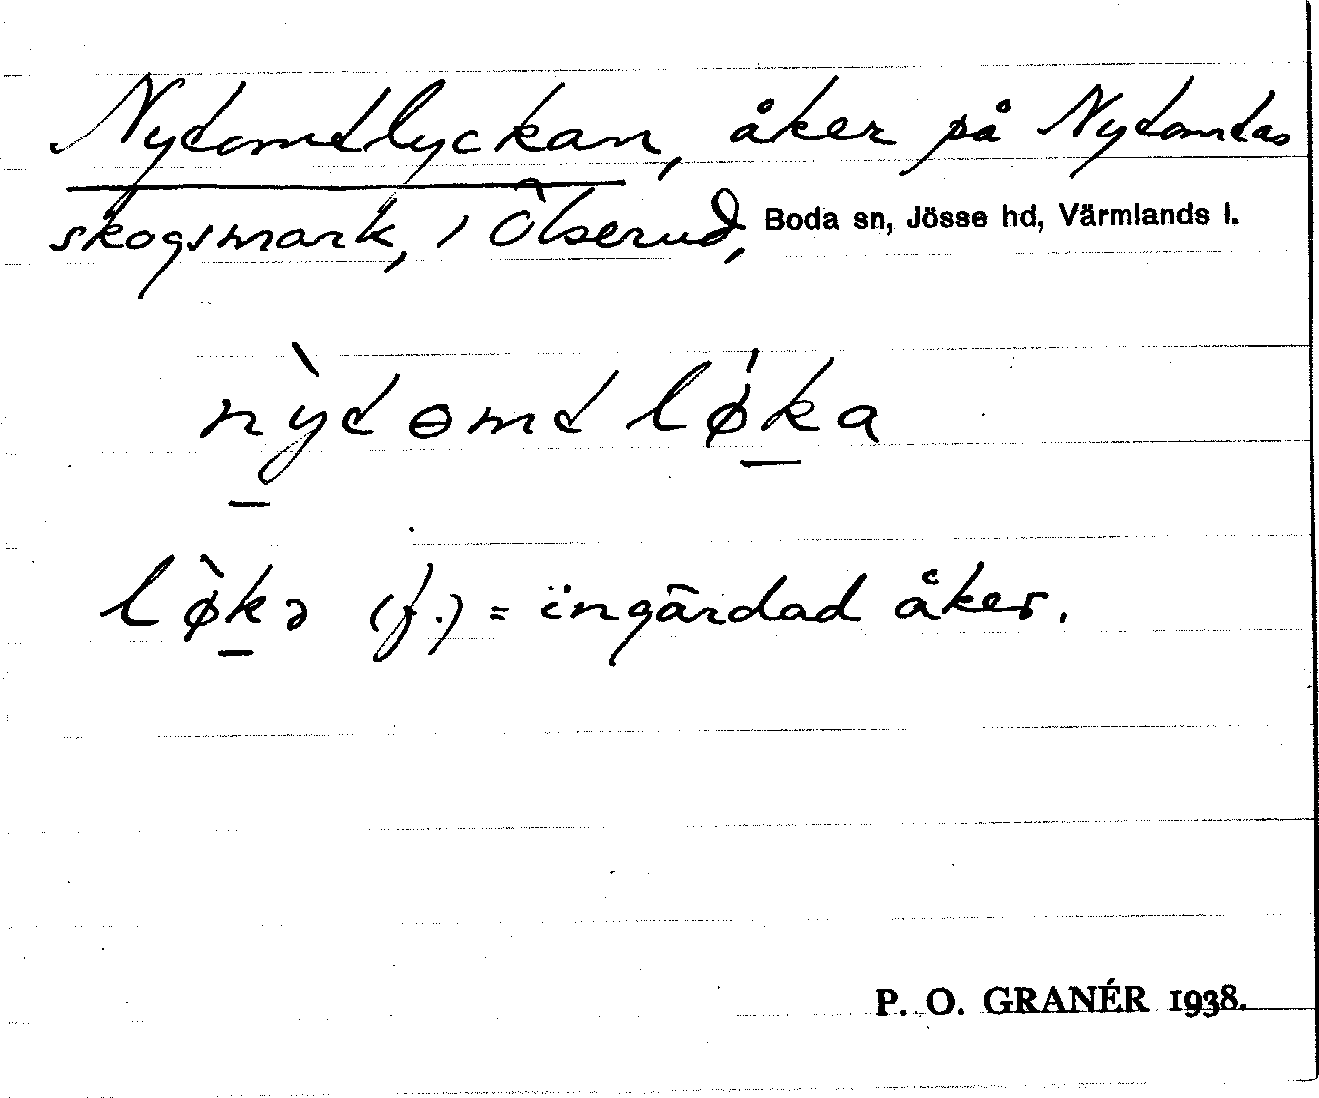 Nytomtlyckan, åker på Nytomtas
skogsmark, i Ölserud, Boda sn, Jösse hd, Värmlands l.
nỳtɵmt lø̍ka
lø̀kə (f.) = ingärdad åker.
P. O. GRANÉR 1938.